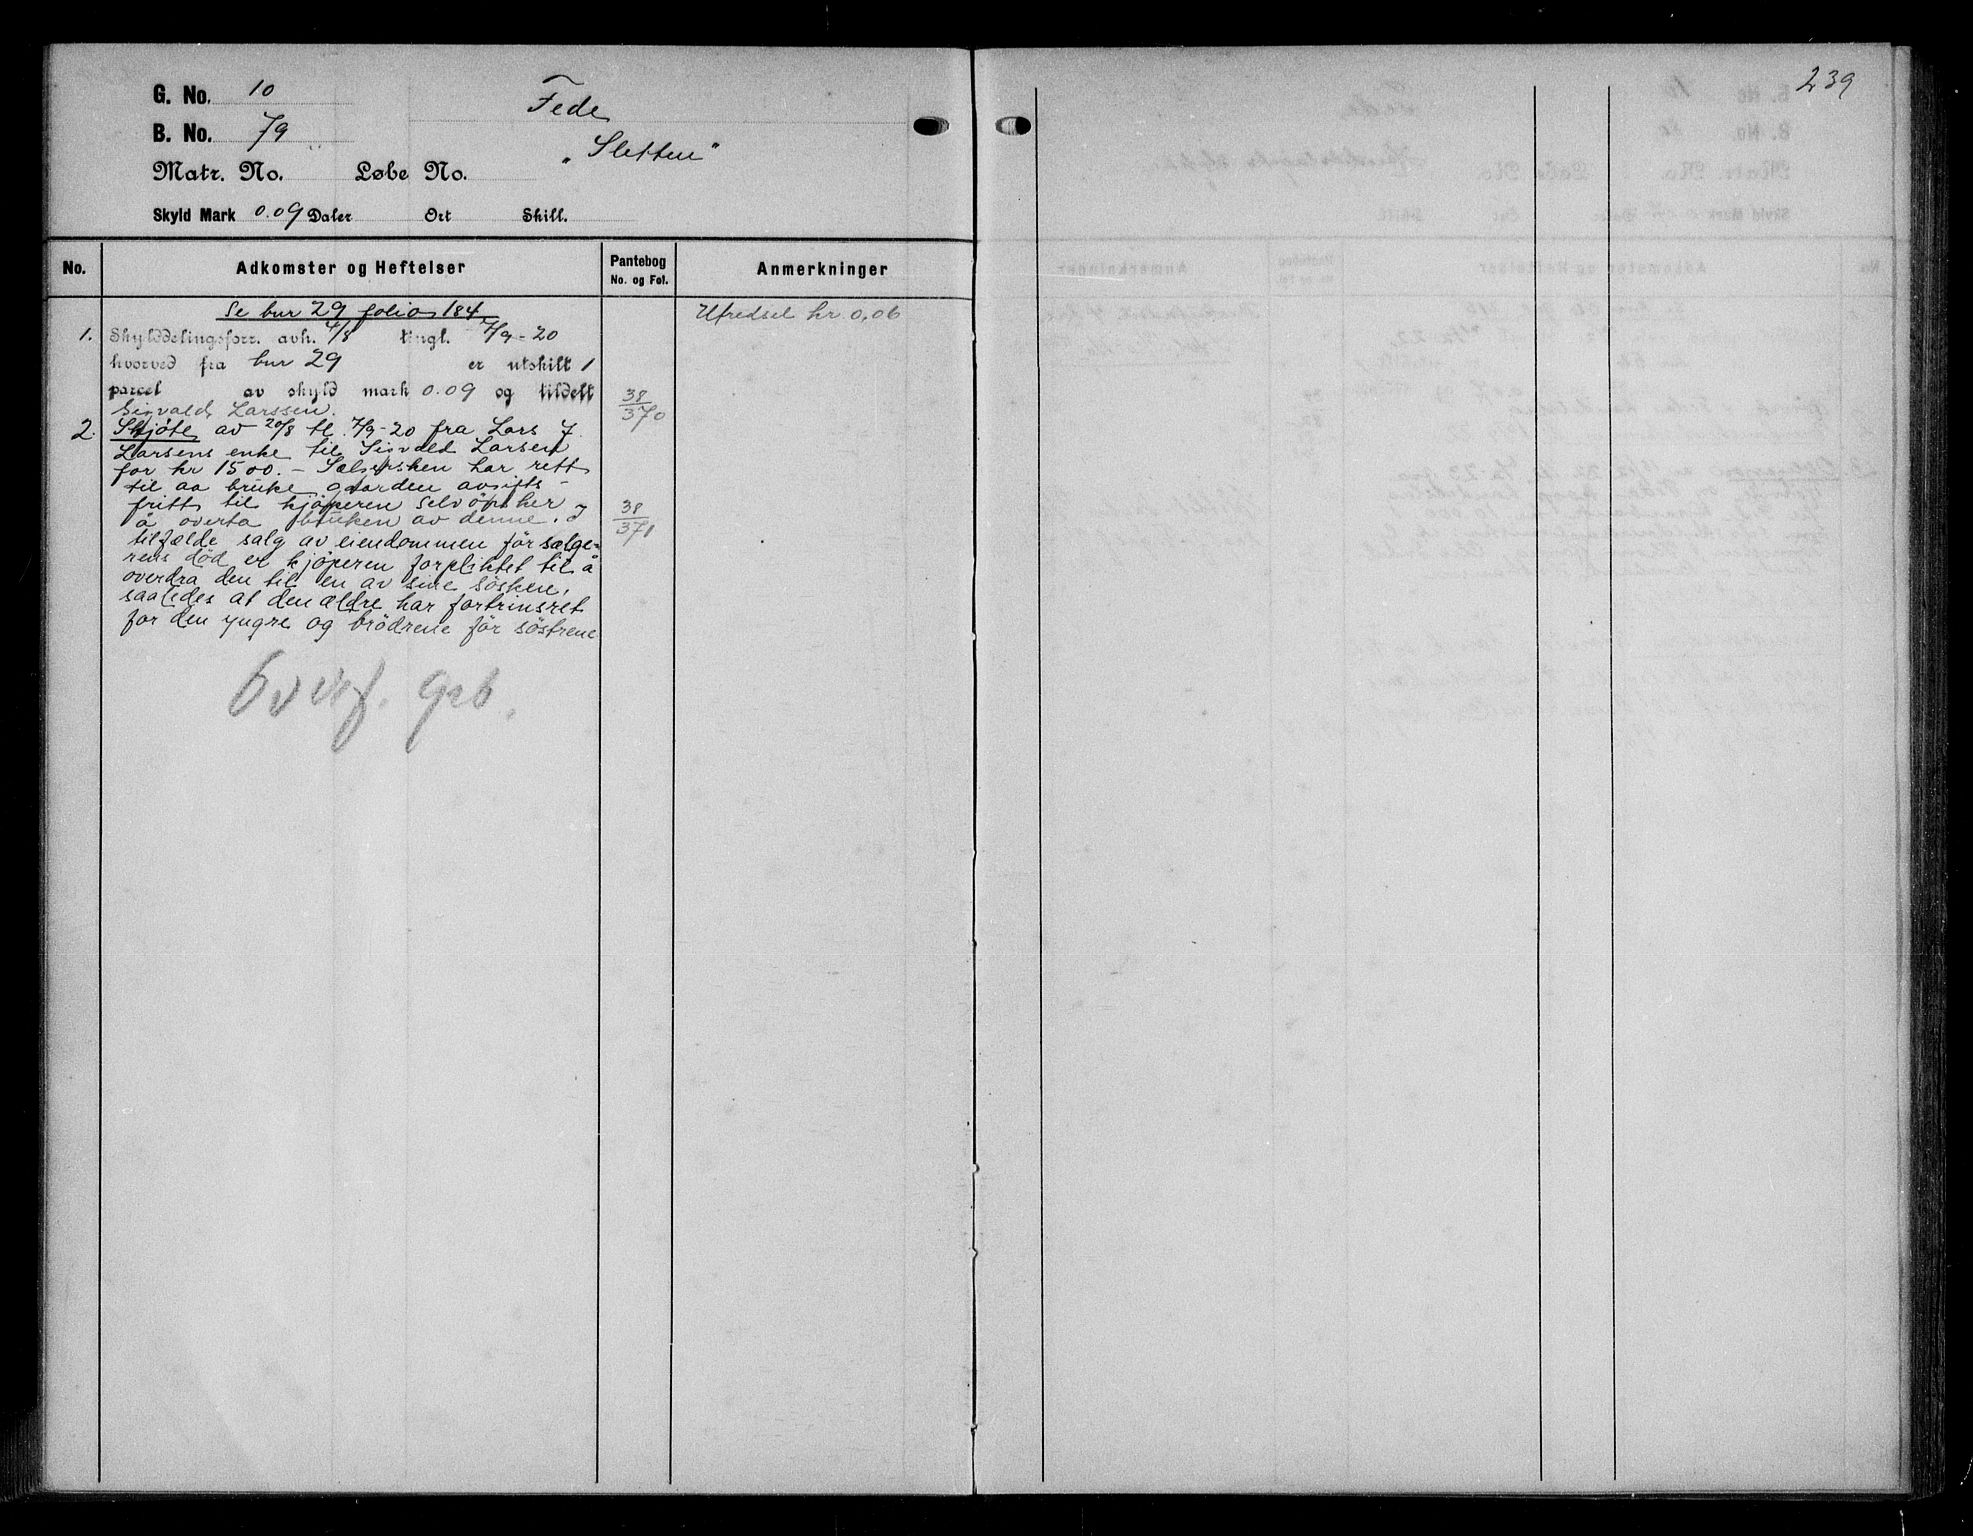 239
G. No. 10
Fede
B. No. 79
„Sletten"
Matr. No. Løbe No.
Skyld Mark 0.09 Daler Ort Skill.
No. Adkomster og Heftelser Pantebog No. og Fol. Anmerkninger
Se bnr 29 folio 184 Utredsel kr 0,06
1. Skylddelingsforr. avh. 4/8 tingl. 7/9-20
hvorved fra bnr 29 er utskilt 1
parcel av skyld mark 0.09 og tildelt 38/370
Sigvald Larssen.
2. Skjøte av 20/8 tl. 7/9-20 fra Lars J.
Larsens enke til Sigvald Larsen
for kr 1500. – Sælgersken har rett
til aa bruke gaarden avgifts-
fritt til kjøperen selv önsker
å overta bruken av denne. I 38/371
tilfælde salg av eiendommen før sælge-
rens död er kjøperen forpliktet til å
overdra den til en av sine sösken,
saaledes at den ældre har fortrinsret
for den yngre og brödrene för söstrene
Overf. grb.